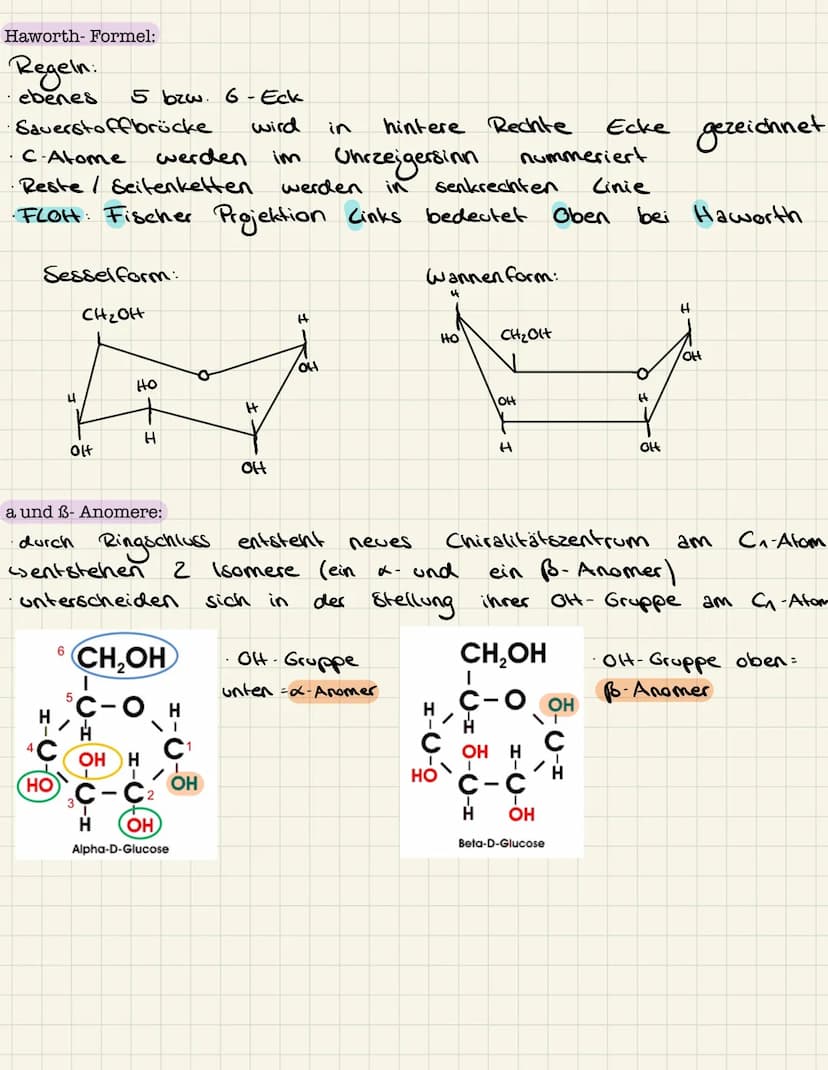 Haworth- Formel:
Regeln:
· ebenes 5 bzw. 6 - Eck
· Sauerstoffbrücke wird in hintere Rechte Ecke gezeichnet
· C-Atome werden im Uhrzeigersinn nummeriert
· Reste / Seitenketten werden in senkrechten Linie
· FLOH: Fischer Projektion Links bedeutet Oben bei Haworth
Sesselform:
Wannenform:
CH₂OH
H
OH
HO
H
H
OH
H
H
OH
H
HO
CH₂OH
H
OH
O
OH
H
H
OH
O
a und ß- Anomere:
· durch Ringschluss entsteht neues Chiralitätszentrum am C₁-Atom
↳ entstehen 2 Isomere (ein α- und ein β- Anomer)
· unterscheiden sich in der Stellung ihrer OH- Gruppe am C₁-Atom
6 CH₂OH
5 C-O
H
H
H
4 C
OH
H
C 1
HO
3 C-C 2
OH
H
OH
Alpha-D-Glucose
· OH - Gruppe
unten = α-Anomer
CH₂OH
C-O
OH
H
H
C
OH
H
C
HO
C-C
H
H
OH
Beta-D-Glucose
· OH-Gruppe oben =
β-Anomer